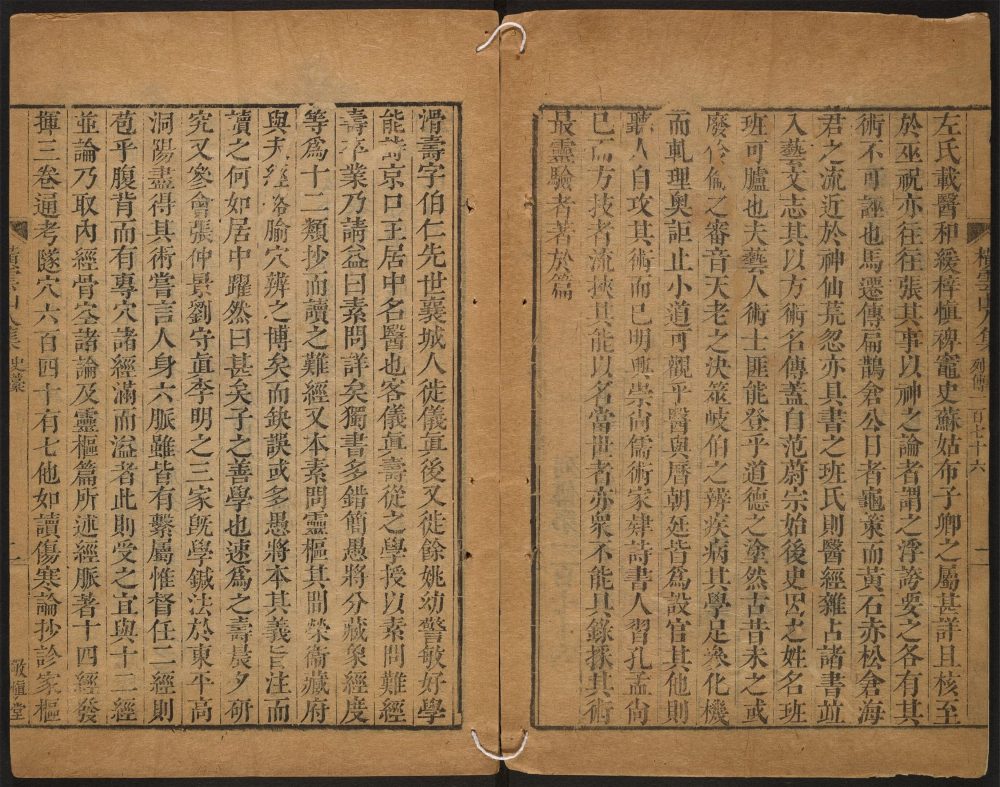 橫雲山人集 列傳一百七十六 一
左氏載醫和緩梓慎裨竈史蘇姑布子卿之屬甚詳且核至
於巫祝亦往往張其事以神之論者謂之浮誇要之各有其
術不可誣也馬遷傳扁鵲倉公日者龜策而黃石赤松倉海
君之流近於神仙荒忽亦具書之班氏則醫經雜占諸書竝
入藝文志其以方術名傳蓋自范蔚宗始後史因之姓名班
班可臚也夫藝人術士匪能登乎道德之塗然古昔未之或
廢後倕之審音天老之決筮岐伯之辨疾病其學足參化機
而軋理奧詎止小道可觀乎醫與曆朝廷皆爲設官其他則
聽人自攻其術而已明興崇尚儒術家肄詩書人習孔孟尚
已而方技者流挾其能以名當世者亦衆不能具錄採其術
最靈驗者著於篇
滑壽字伯仁先世襄城人徙儀真後又徙餘姚幼警敏好學
能詩京口王居中名醫也客儀真壽從之學授以素問難經
壽卒業乃請益曰素問詳矣獨書多錯簡愚將分藏象經度
等爲十二類抄而讀之難經又本素問靈樞其間榮衞藏府
與夫經絡腧穴辨之博矣而缺誤或多愚將本其義旨注而
讀之何如居中躍然曰甚矣子之善學也速爲之壽晨夕研
究又參會張仲景劉守眞李明之三家旣學鍼法於東平高
洞陽盡得其術嘗言人身六脈雖皆有繫屬惟督任二經則
苞乎腹背而有專穴諸經滿而溢者此則受之宜與十二經
並論乃取內經骨空諸論及靈樞篇所述經脈著十四經發
揮三卷通考隧穴六百四十有七他如讀傷寒論抄診家樞
橫雲山人集 史藁 一 敬愼堂